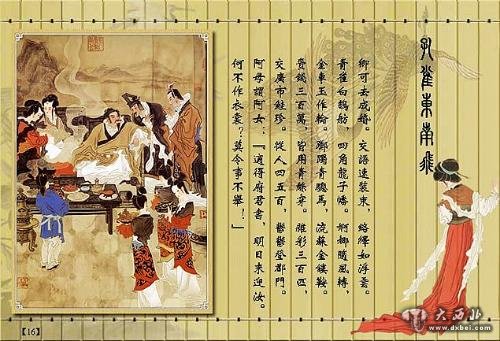 孔雀東南飛
卿可去成婚。交語速裝束，絡繹如浮雲。
青雀白鵠舫，四角龍子幡。婀娜隨風轉，
金車玉作輪。躑躅青驄馬，流蘇金鏤鞍。
賫錢三百萬，皆用青絲穿。雜彩三百匹，
交廣市鮭珍。從人四五百，鬱鬱登郡門。
阿母謂阿女：「適得府君書，明日來迎汝。
何不作衣裳？莫令事不舉！」
【16】
大西北
www.dxbei.com